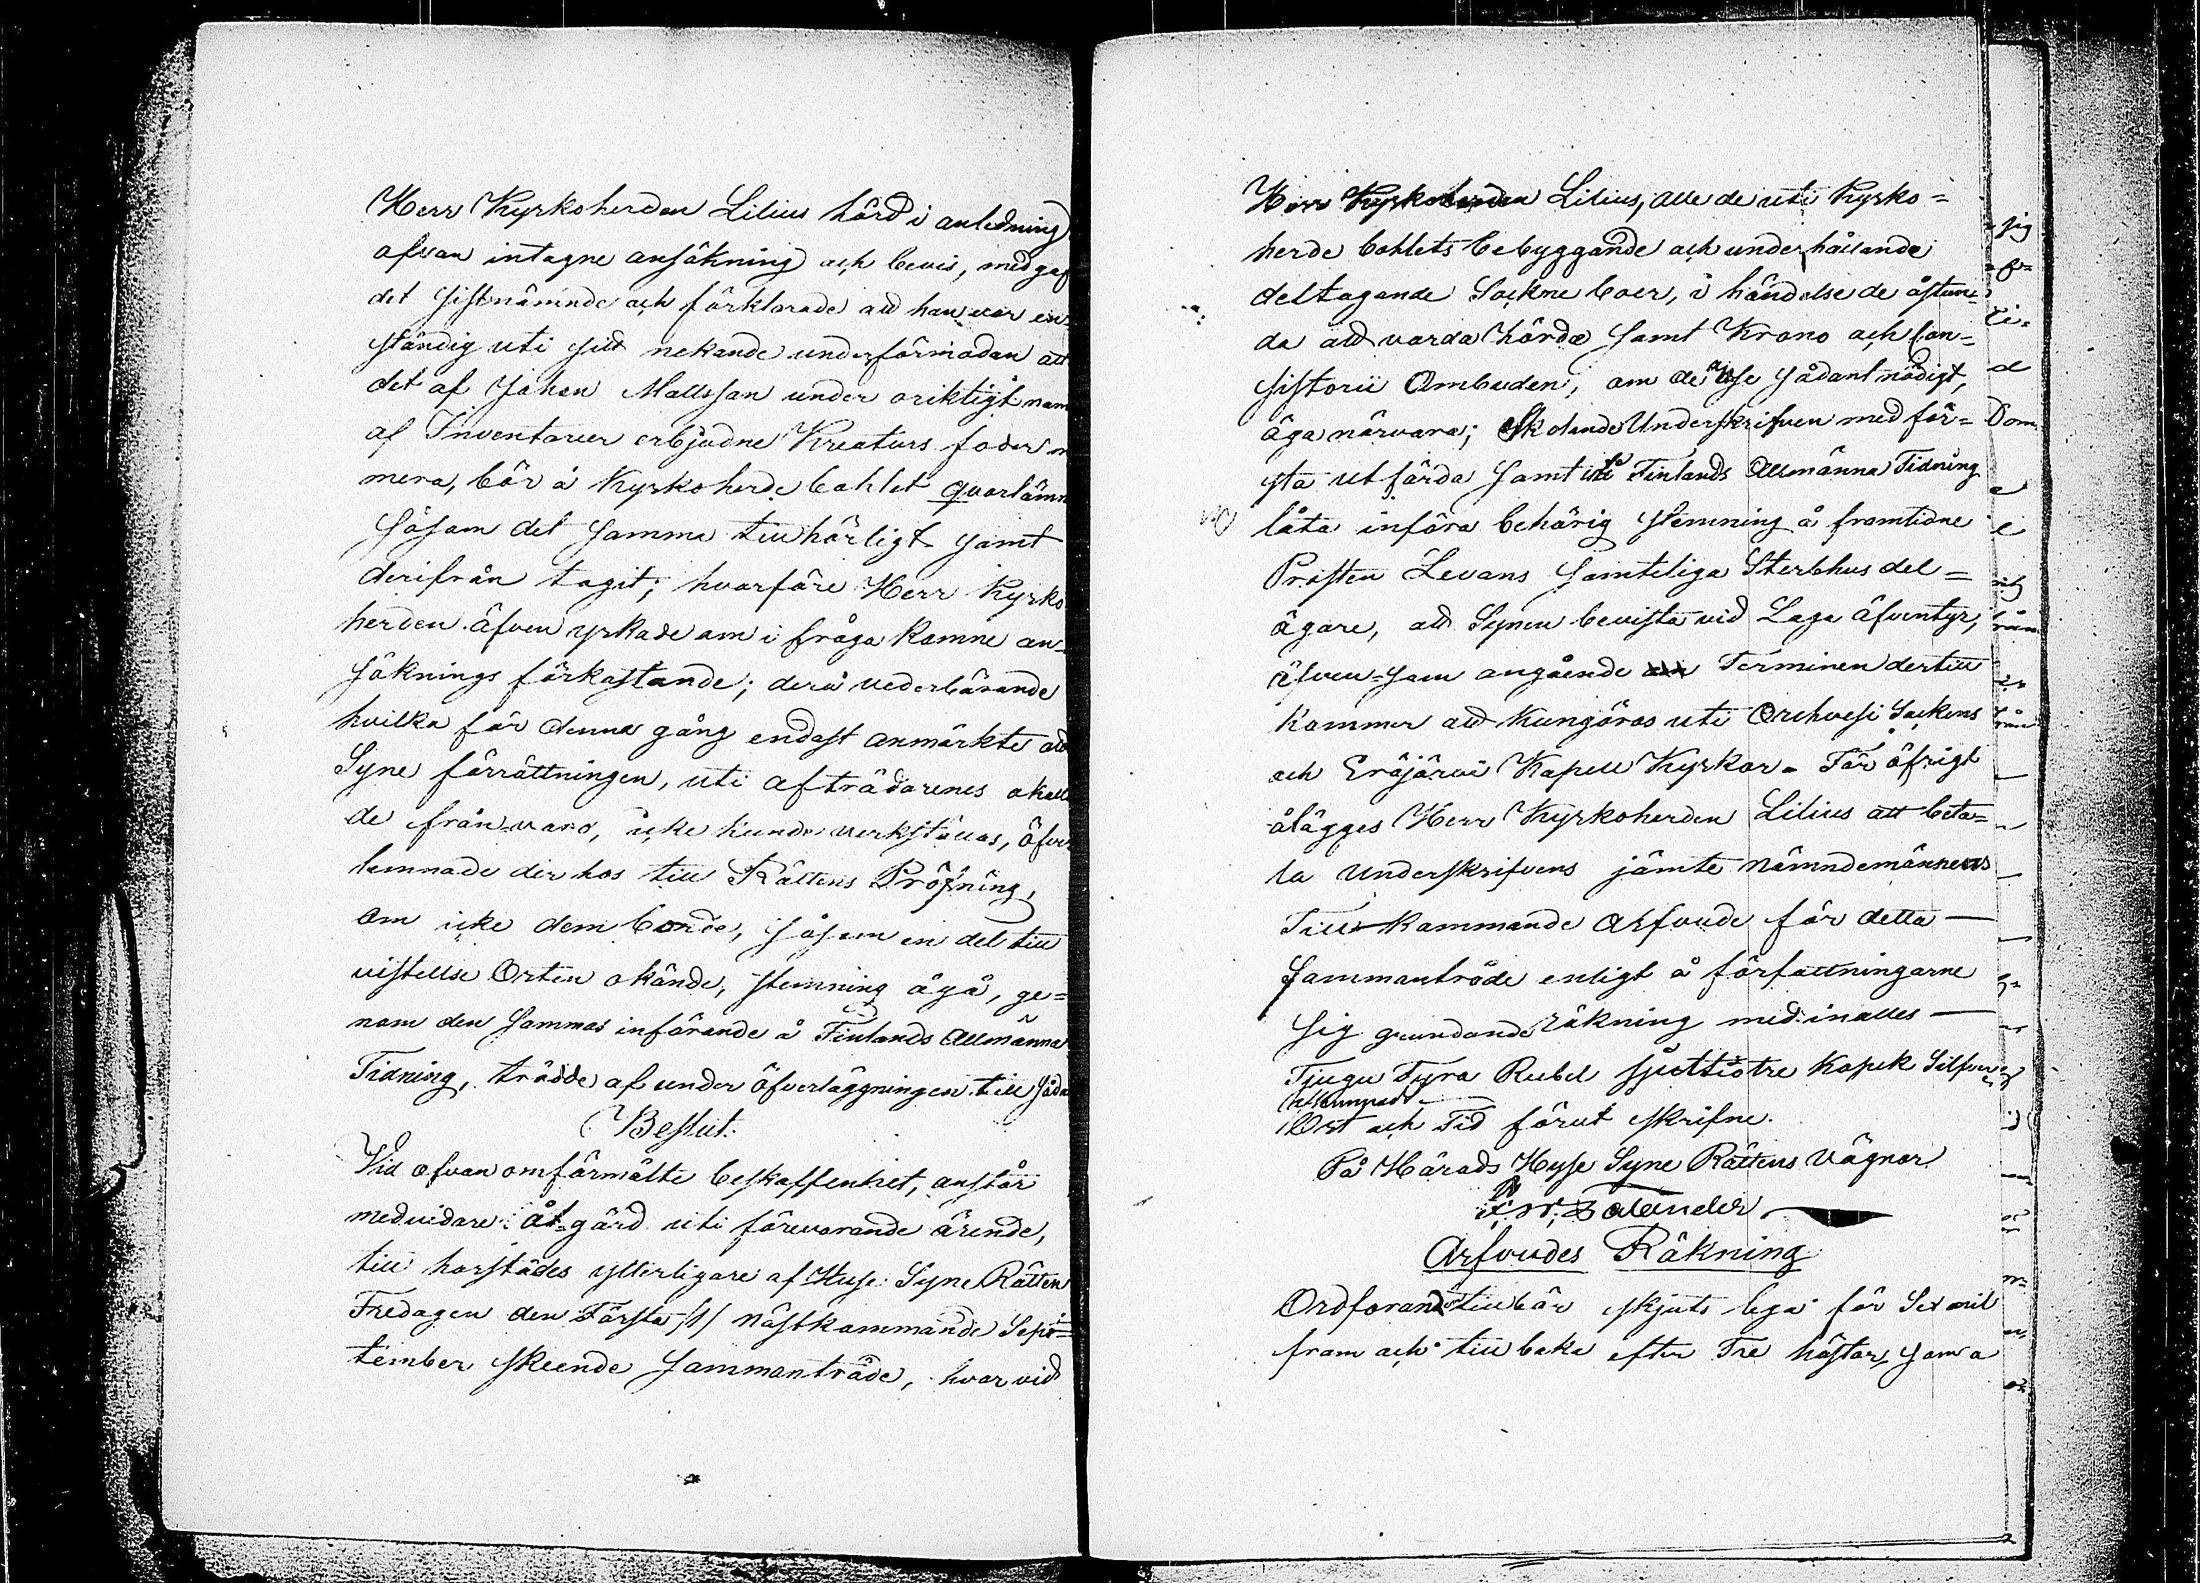 Herr Kyrkoherden Lilius hörd i anledning
ofvan intagne ansökning och bevis, medgaf
det sistnämnde och förklarade att han var en-
ständig uti sitt nekande under förmodan att
det af Johan Mattsson under oriktigt nam
af Inventarier erbjudne Kreaturs foder m
mera, bör å Kyrkoherde bohlet qvarlämn
såsom det samma tillhörligt samt
derifrån tagit; hvarföre Herr Kyrko
herden äfven yrkade om i fråga komne an-
söknings förkastande; derå vederbörande
hvilka för denna gång endast anmärkte att
Syne förrättningen, uti afträdarenes okall
de från varo, icke kunde verkställas, öfver
lemnade der hos till Rättens Pröfning,
om icke dem borde, såsom en del till
vistelse Orten okände, stemning ågå, ge-
nom den sammas införande å Finlands Allmänna
Tidning, trädde af under öfverläggningen till såda
Beslut.
Vid ofvan omförmälte beskaffenhet, anstår
med vidare åtgärd uti förevarande ärende,
till harstädes ytterligare af Huse Syne Rätten
Fredagen den Första /1/ nästkommande Sep-
tember skeende sammanträde, hvar vid
Herr Kyrkoherden Lilius, alle de uti Kyrko-
herde bohlets bebyggande och underhållande
deltagande Sockne boer, i händelse de åstun-
da att varda hörde samt Krono och Con-
sistorii Ombuden, om de anse sådant nödigt,
äga närvara; Skolande Underskrifven med för-
sta utfärda samt i Finlands Allmänna Tidning
låta införa behörig stemning å framlidne
Prosten Levans samteliga Sterbhus del-
ägare, att Synen bevista vid Laga äfventyr,
äfven-som angående Terminen dertill
kommer att kungöras uti Orihvesi Sockens
och Eräjärvi Kapell Kyrkor. För öfrigt
ålägges Herr Kyrkoherden Lilius att beta-
la Underskrifvens jämte nämndemännens
Till kommande Arfvode för detta
Sammanträde enligt å författningarne
sig grundande räkning med inalles
Tjugu Fyra Rubel sjuttiotre Kopek Silfver
Ort och Tid förut skrifne.
På Härads Husе Syne Rättens vägnar
Arfvodes Räkning
Ordforande tillbör skjuts lega för Sex mil
fram och till baka efter Tre hästar, som a